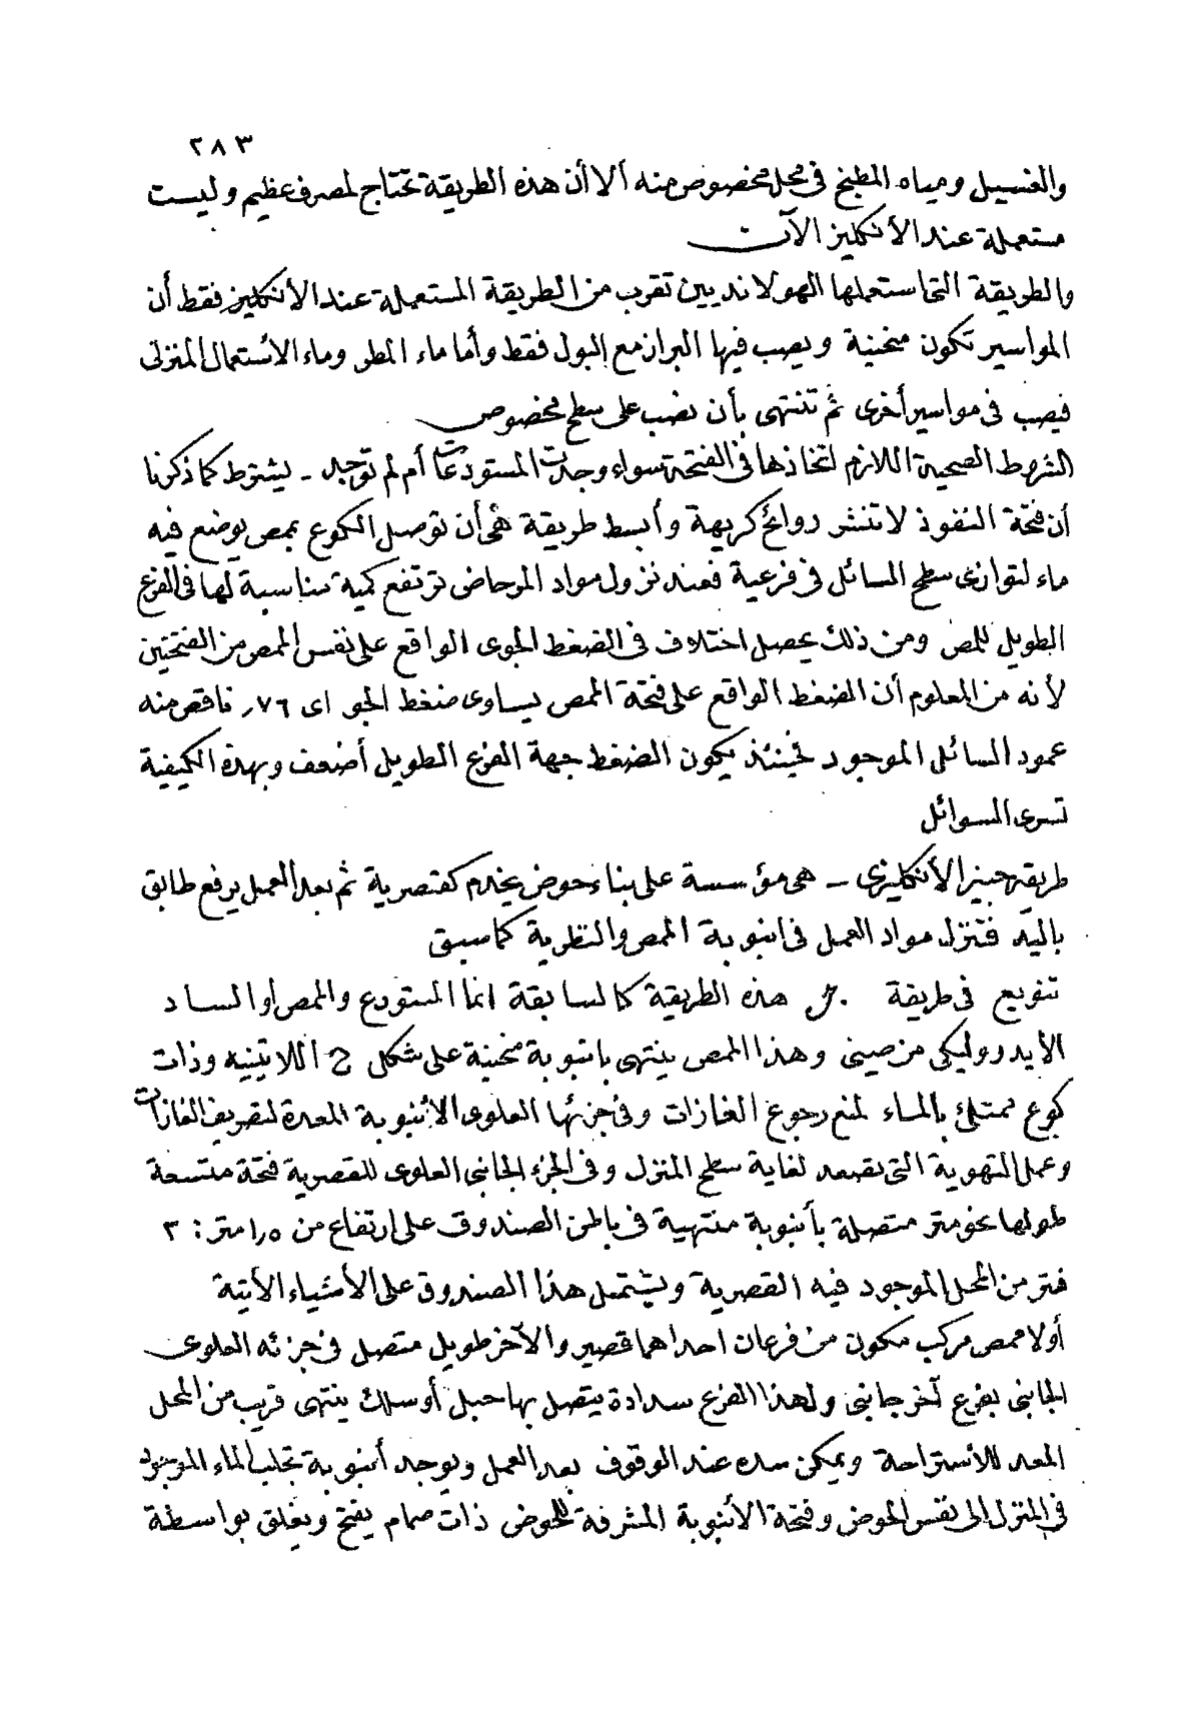 ٢٨٣
والغسيل ومياه المطبخ فى محل مخصوص منه ألا أن هذه الطريقة تحتاج لمصرف عظيم وليست
مستعملة عند الأنكليز الآن
والطريقة التى استعملها الهولانديين تقرب من الطريقة المستعملة عند الأنكليز فقط أن
المواسير تكون منحنية ويصب فيها البراز مع البول فقط وأما ماء المطر وماء الاستعمال المنزلى
فيصب فى مواسير أخرى ثم تنتهى بأن تصب على سطح مخصوص
الشروط الصحية اللازم اتخاذها فى الفتحة سواء وجدت المستودعات أم لم توجد ـ يشترط كما ذكرنا
أن فتحة النفوذ لا تنشر روائح كريهة وأبسط طريقة هى أن توصل الكوع بممص يوضع فيه
ماء لتوازى سطح السائل فى فرعية فعند نزول مواد المرحاض ترتفع كمية مناسبة لها فى الفرع
الطويل للمص ومن ذلك يحصل اختلاف فى الضغط الجوى الواقع على نفس الممص من الفتحتين
لأنه من المعلوم أن الضغط الواقع على فتحة الممص يساوى ضغط الجو اى ٧٦ر ناقص منه
عمود السائل الموجود فحينئذ يكون الضغط جهة الفرع الطويل أضعف وبهذة الكيفية
تسرى السوائل
طريقة جينز الأنكليزى ـ هى مؤسسة على بناء حوض يخدم كقصرية ثم بعد العمل يرفع طابق
باليد فتنزل مواد العمل فى انبوبة الممص والنظرية كما سبق
تنويع فى طريقة هذه الطريقة كالسابقة انما المستودع والممص او الساد
الأيدروليكى من صينى وهذا الممص ينتهى بانبوبة منحنية على شكل اللاتينيه وذات
كوع ممتلئ بالماء لمنع رجوع الغازات وفى جزئها العلوى الأنبوبة المعدة لتصريف الغازات
وعمل التهوية التى تصعد لغاية سطح المنزل وفى الجزء الجانبى العلوى للقصرية فتحة متسعة
طولها نحو متر متصلة بأنبوبة منتهية فى باطن الصندوق على ارتفاع من ١٫٥ متر : ٣
فتر من المحل الموجود فيه القصرية ويشتمل هذا الصندوق على الأشياء الأتية
أولا ممص مركب مكون من فرعان احداهما قصير والآخر طويل متصل فى جزئه العلوى
الجانبى بفرع آخر جانبى ولهذا الفرع سدادة يتصل بها حبل أو سلك ينتهى قريب من المحل
المعد للأستراحة ويمكن سده عند الوقوف بعد العمل ويوجد أنبوبة تجلب الماء الموجود
فى المنزل الى نفس الحوض وفتحة الأنبوبة المشرفة للحوض ذات صمام يفتح ويغلق بواسطة